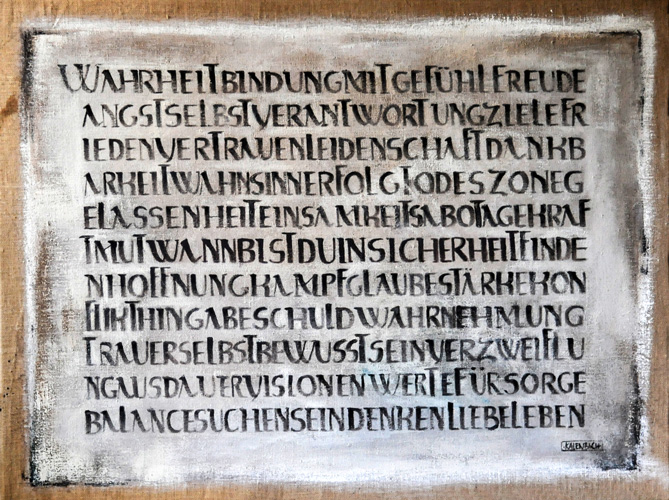 WAHRHEITBINDUNGMITGEFÜHLFREUDE
ANGSTSELBSTVERANTWORTUNGZIELEFR
IEDENVERTRAUENLEIDENSCHAFTDANKB
ARKEITWAHNSINNERFOLGTODESZONEG
ELASSENHEITEINSAMKEITSABOTAGEKRAF
TMUTWANNBISTDUINSICHERHEITFINDE
NHOFFNUNGKAMPFGLAUBESTÄRKEKON
FLIKTHINGABESCHULDWAHRNEHMUNG
TRAUERSELBSTBEWUSSTSEINVERZWEIFLU
NGAUSDAUERVISIONENWERTEFÜRSORGE
BALANCESUCHENSEINDENKENLIEBELEBEN
KALENBACH